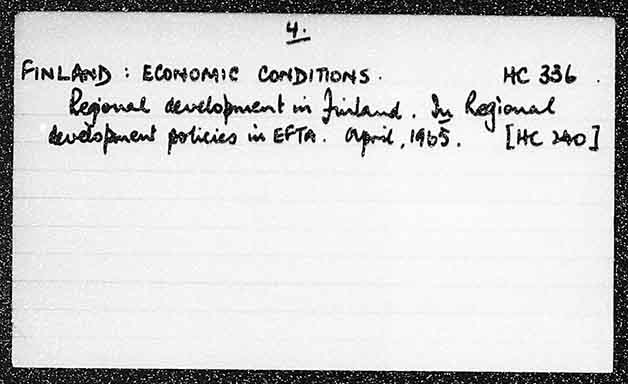 4.
FINLAND : ECONOMIC CONDITIONS. HC 336.
Regional development in Finland. In Regional
development policies in EFTA. April, 1965. [HC 240]